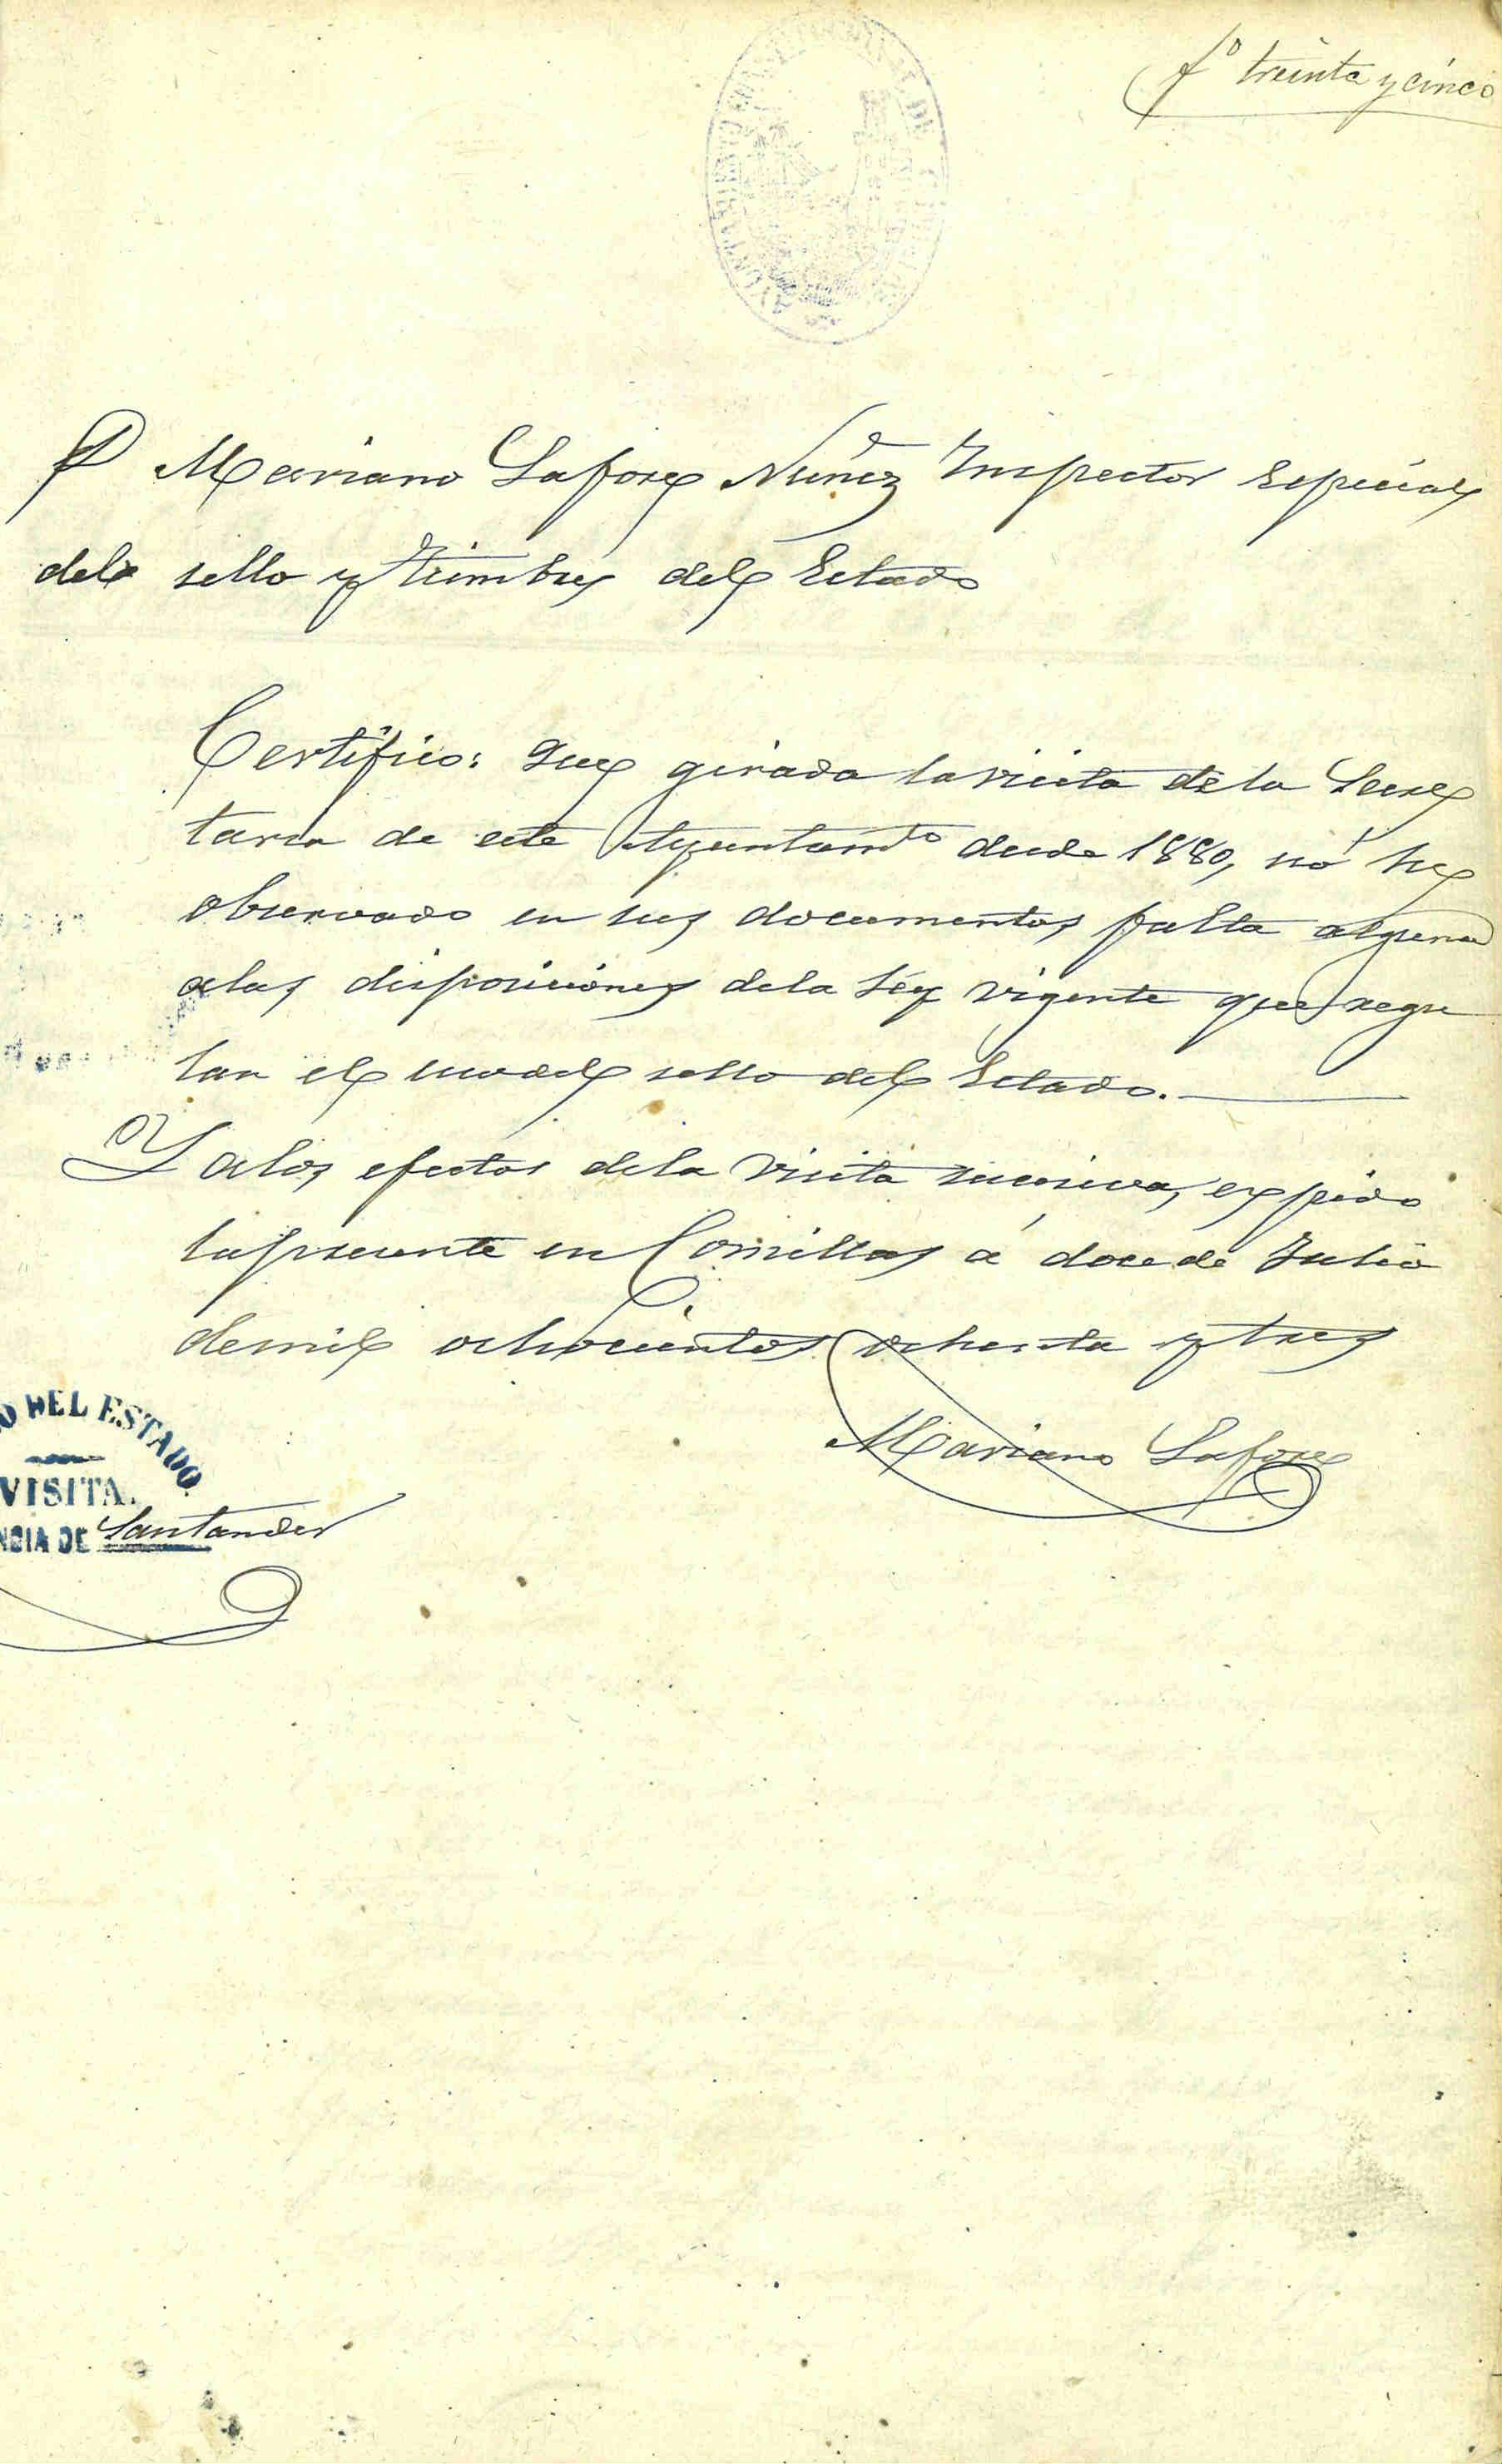 fº treinta y cinco
AYUNTAMIENTO CONSTITUCIONAL DE
D Mariano Lafore Nuñez Inspector Especial
del sello y timbre del Estado
Certifico: Que girada la visita de la Secre
taria de este Ayuntamto desde 1880, nó he
observado en sus documentos falta alguna
a las disposiciones de la Ley vigente que regu
lan el uso del sello del Estado.
Y a los efectos de la visita sucesiva, expido
la presente en Comillas á doce de Julio
de mil ochocientos ochenta y tres
Mariano Lafore
DEL ESTADO
VISITA.
NCIA DE Santander